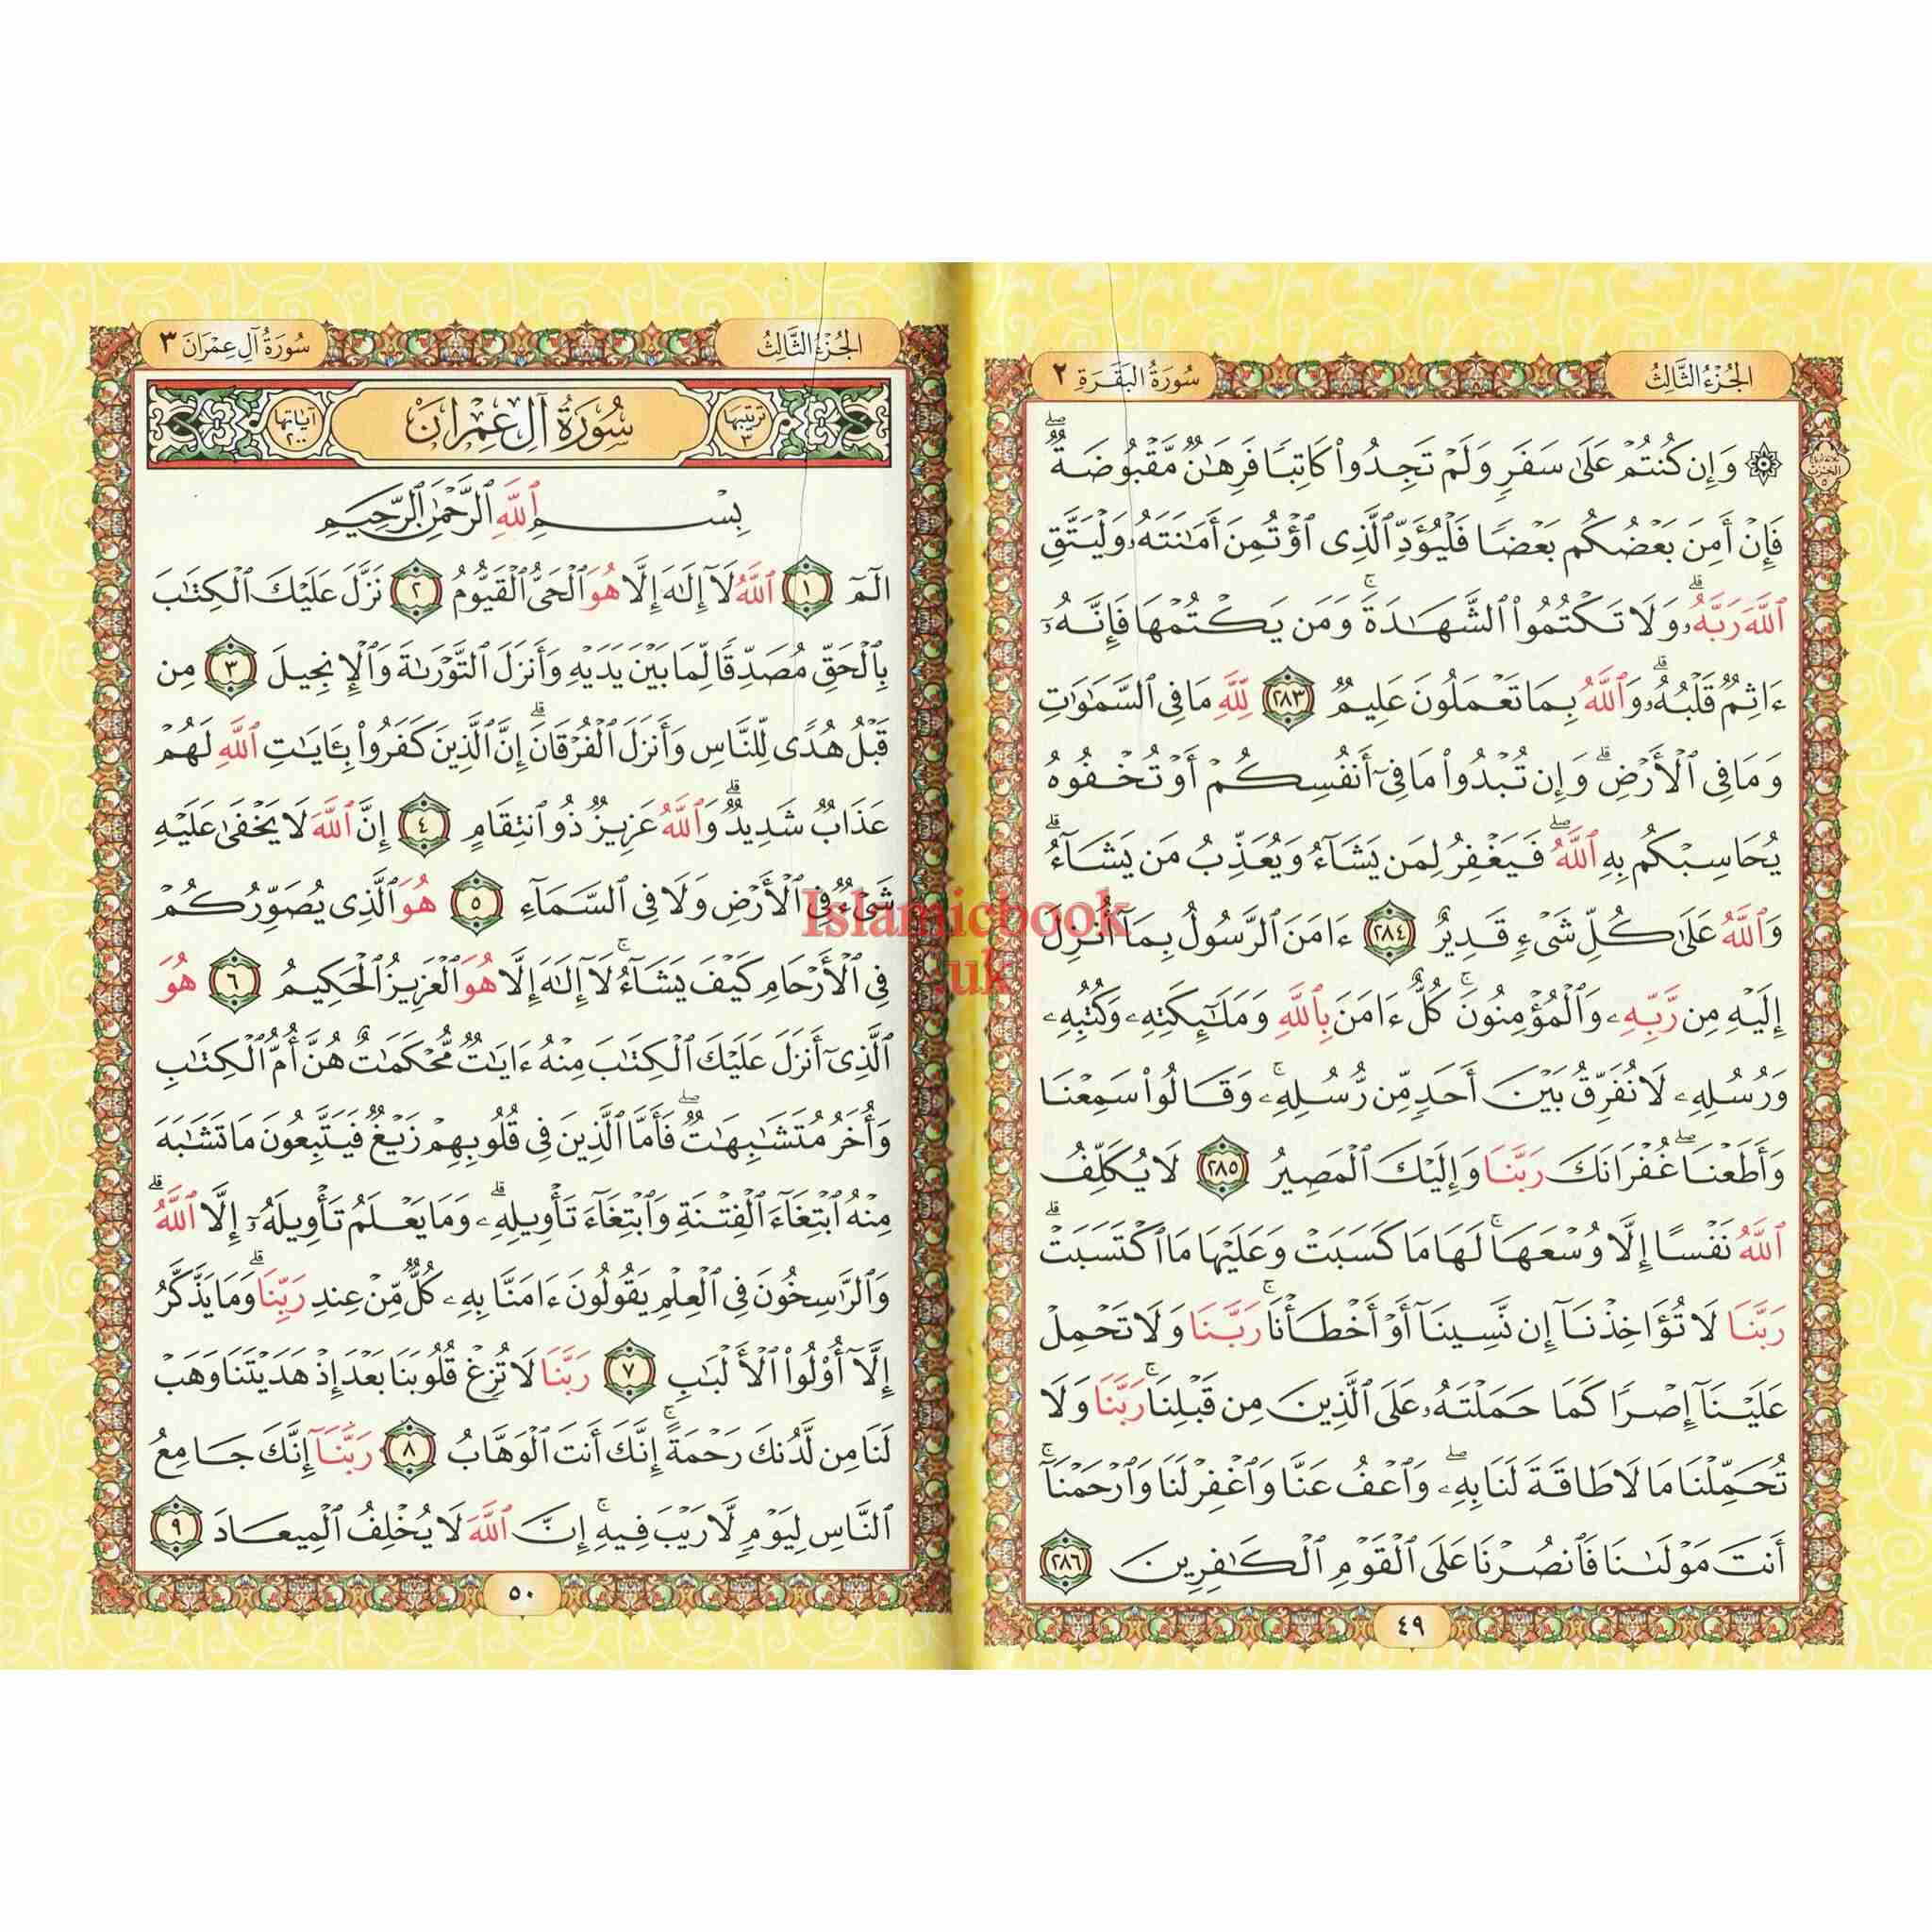 الجُزْءُ الثَّالِثُ
سُورَةُ البَقَرَةِ ٢
۞ وَإِن كُنتُمْ عَلَىٰ سَفَرٍ وَلَمْ تَجِدُوا۟ كَاتِبًا فَرِهَـٰنٌ مَّقْبُوضَةٌ ۖ
فَإِنْ أَمِنَ بَعْضُكُم بَعْضًا فَلْيُؤَدِّ ٱلَّذِى ٱؤْتُمِنَ أَمَـٰنَتَهُۥ وَلْيَتَّقِ
ٱللَّهَ رَبَّهُۥ ۗ وَلَا تَكْتُمُوا۟ ٱلشَّهَـٰدَةَ ۚ وَمَن يَكْتُمْهَا فَإِنَّهُۥٓ
ءَاثِمٌ قَلْبُهُۥ ۗ وَٱللَّهُ بِمَا تَعْمَلُونَ عَلِيمٌ ٢٨٣ لِّلَّهِ مَا فِى ٱلسَّمَـٰوَٰتِ
وَمَا فِى ٱلْأَرْضِ ۗ وَإِن تُبْدُوا۟ مَا فِىٓ أَنفُسِكُمْ أَوْ تُخْفُوهُ
يُحَاسِبْكُم بِهِ ٱللَّهُ ۖ فَيَغْفِرُ لِمَن يَشَآءُ وَيُعَذِّبُ مَن يَشَآءُ ۗ
وَٱللَّهُ عَلَىٰ كُلِّ شَىْءٍ قَدِيرٌ ٢٨٤ ءَامَنَ ٱلرَّسُولُ بِمَآ أُنزِلَ
إِلَيْهِ مِن رَّبِّهِۦ وَٱلْمُؤْمِنُونَ ۚ كُلٌّ ءَامَنَ بِٱللَّهِ وَمَلَـٰٓئِكَتِهِۦ وَكُتُبِهِۦ
وَرُسُلِهِۦ لَا نُفَرِّقُ بَيْنَ أَحَدٍ مِّن رُّسُلِهِۦ ۚ وَقَالُوا۟ سَمِعْنَا
وَأَطَعْنَا ۖ غُفْرَانَكَ رَبَّنَا وَإِلَيْكَ ٱلْمَصِيرُ ٢٨٥ لَا يُكَلِّفُ
ٱللَّهُ نَفْسًا إِلَّا وُسْعَهَا ۚ لَهَا مَا كَسَبَتْ وَعَلَيْهَا مَا ٱكْتَسَبَتْ ۗ
رَبَّنَا لَا تُؤَاخِذْنَآ إِن نَّسِينَآ أَوْ أَخْطَأْنَا ۚ رَبَّنَا وَلَا تَحْمِلْ
عَلَيْنَآ إِصْرًا كَمَا حَمَلْتَهُۥ عَلَى ٱلَّذِينَ مِن قَبْلِنَا ۚ رَبَّنَا وَلَا
تُحَمِّلْنَا مَا لَا طَاقَةَ لَنَا بِهِۦ ۖ وَٱعْفُ عَنَّا وَٱغْفِرْ لَنَا وَٱرْحَمْنَآ ۚ
أَنتَ مَوْلَىٰنَا فَٱنصُرْنَا عَلَى ٱلْقَوْمِ ٱلْكَـٰفِرِينَ ٢٨٦
٤٩
الجُزْءُ الثَّالِثُ
سُورَةُ آلِ عِمْرَانَ ٣
ترتيبها ٣
سُورَةُ آلِ عِمْرَانَ
آياتها ٢٠٠
بِسْمِ ٱللَّهِ ٱلرَّحْمَـٰنِ ٱلرَّحِيمِ
الٓمٓ ١ ٱللَّهُ لَآ إِلَـٰهَ إِلَّا هُوَ ٱلْحَىُّ ٱلْقَيُّومُ ٢ نَزَّلَ عَلَيْكَ ٱلْكِتَـٰبَ
بِٱلْحَقِّ مُصَدِّقًا لِّمَا بَيْنَ يَدَيْهِ وَأَنزَلَ ٱلتَّوْرَىٰةَ وَٱلْإِنجِيلَ ٣ مِن
قَبْلُ هُدًى لِّلنَّاسِ وَأَنزَلَ ٱلْفُرْقَانَ ۗ إِنَّ ٱلَّذِينَ كَفَرُوا۟ بِـَٔايَـٰتِ ٱللَّهِ لَهُمْ
عَذَابٌ شَدِيدٌ ۗ وَٱللَّهُ عَزِيزٌ ذُو ٱنتِقَامٍ ٤ إِنَّ ٱللَّهَ لَا يَخْفَىٰ عَلَيْهِ
شَىْءٌ فِى ٱلْأَرْضِ وَلَا فِى ٱلسَّمَآءِ ٥ هُوَ ٱلَّذِى يُصَوِّرُكُمْ
فِى ٱلْأَرْحَامِ كَيْفَ يَشَآءُ ۚ لَآ إِلَـٰهَ إِلَّا هُوَ ٱلْعَزِيزُ ٱلْحَكِيمُ ٦ هُوَ
ٱلَّذِىٓ أَنزَلَ عَلَيْكَ ٱلْكِتَـٰبَ مِنْهُ ءَايَـٰتٌ مُّحْكَمَـٰتٌ هُنَّ أُمُّ ٱلْكِتَـٰبِ
وَأُخَرُ مُتَشَـٰبِهَـٰتٌ ۖ فَأَمَّا ٱلَّذِينَ فِى قُلُوبِهِمْ زَيْغٌ فَيَتَّبِعُونَ مَا تَشَـٰبَهَ
مِنْهُ ٱبْتِغَآءَ ٱلْفِتْنَةِ وَٱبْتِغَآءَ تَأْوِيلِهِۦ ۗ وَمَا يَعْلَمُ تَأْوِيلَهُۥٓ إِلَّا ٱللَّهُ ۗ
وَٱلرَّٰسِخُونَ فِى ٱلْعِلْمِ يَقُولُونَ ءَامَنَّا بِهِۦ كُلٌّ مِّنْ عِندِ رَبِّنَا ۗ وَمَا يَذَّكَّرُ
إِلَّآ أُو۟لُوا۟ ٱلْأَلْبَـٰبِ ٧ رَبَّنَا لَا تُزِغْ قُلُوبَنَا بَعْدَ إِذْ هَدَيْتَنَا وَهَبْ
لَنَا مِن لَّدُنكَ رَحْمَةً ۚ إِنَّكَ أَنتَ ٱلْوَهَّابُ ٨ رَبَّنَآ إِنَّكَ جَامِعُ
ٱلنَّاسِ لِيَوْمٍ لَّا رَيْبَ فِيهِ ۚ إِنَّ ٱللَّهَ لَا يُخْلِفُ ٱلْمِيعَادَ ٩
٥٠
Islamicbook
.uk